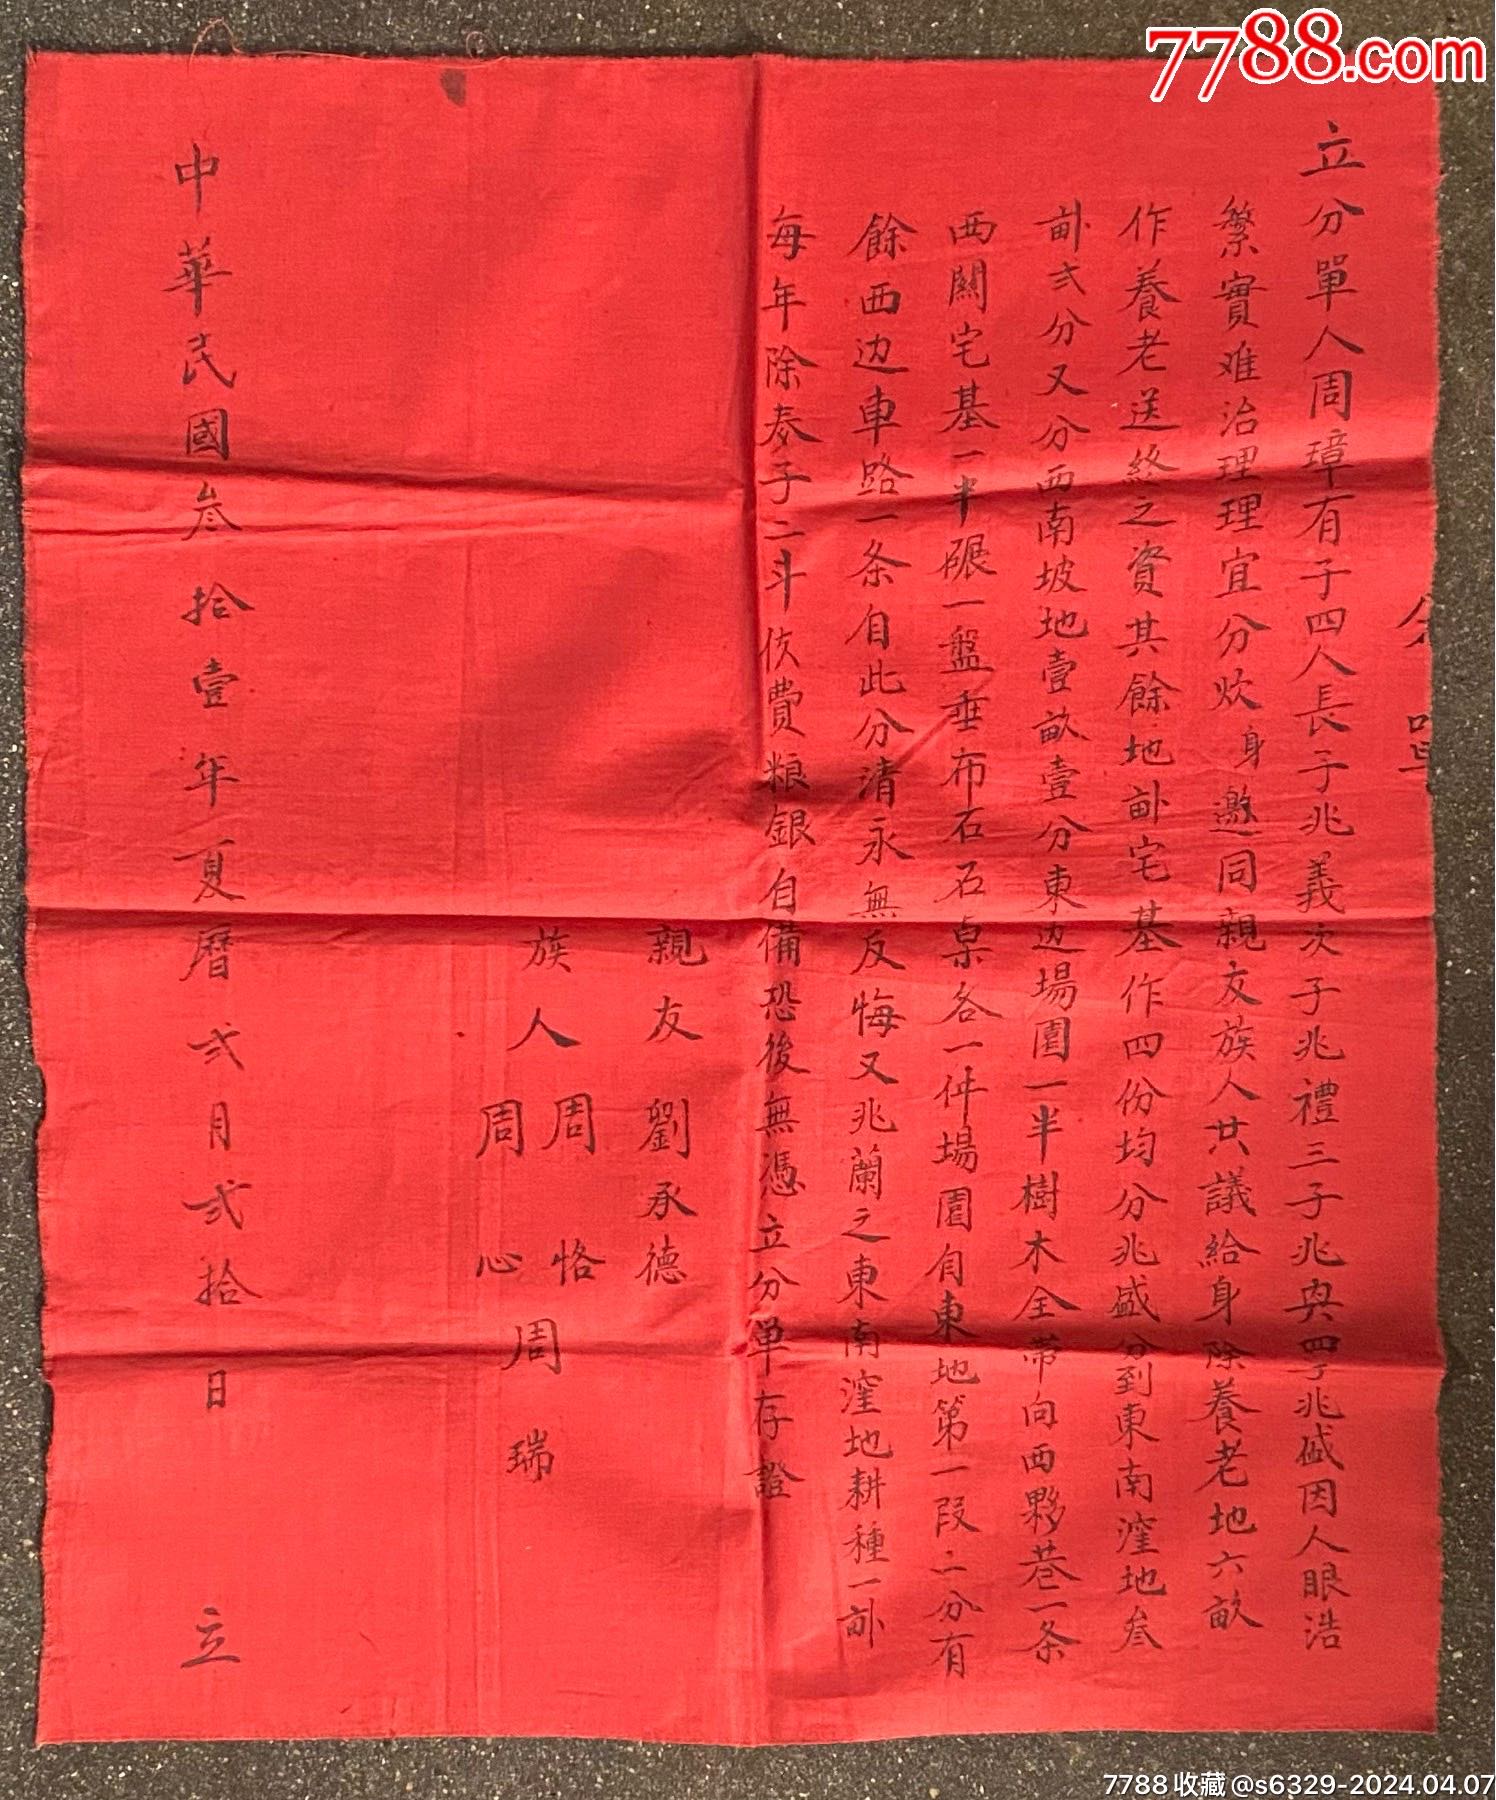 7788.com
立分單人周璋有子四人長子兆義次子兆禮三子兆與四子兆盛因人眼浩
繁實难治理理宜分炊身邀同親友族人共議給身除養老地六畝
作養老送終之資其餘地畝宅基作四份均分兆盛分到東南漥地叁
畝弍分又分西南坡地壹畝壹分東边場園一半樹木全带向西夥巷一条
西關宅基一半碾一盤垂布石石桌各一件場園自東地第一段二分有
餘西边車路一条自此分清永無反悔又兆蘭之東南漥地耕種一畝
每年除麦子二斗伙費粮銀自備恐後無憑立分单存證
親友 劉承德
族人 周恪 周心 周瑞
中華民國叁拾壹年夏曆弍月弍拾日 立
7788收藏@s6329-2024.04.07